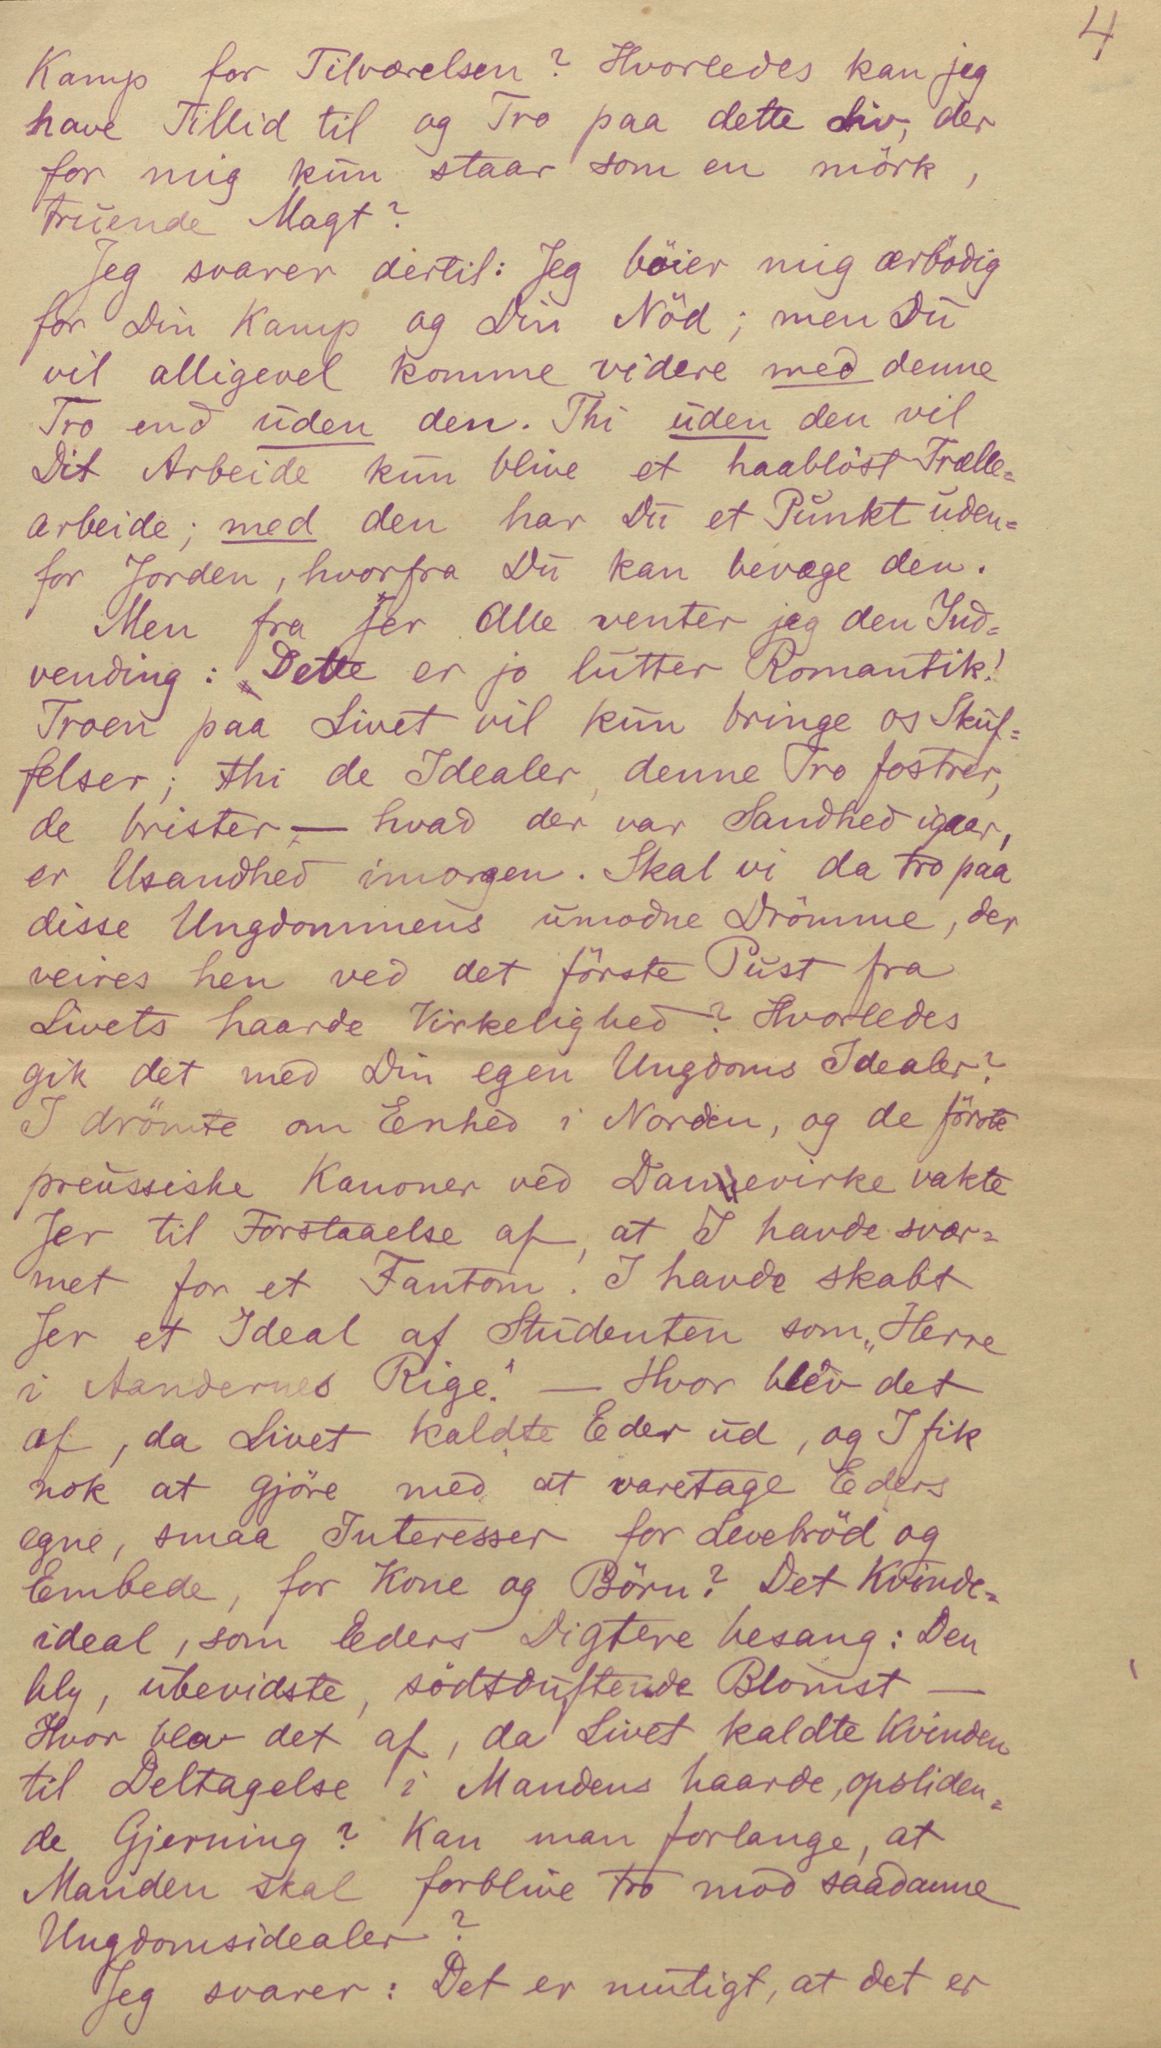 4
Kamp for Tilværelsen? Hvorledes kan jeg
have Tillid til og Tro paa dette Liv, der
for mig kun staar som en mörk,
truende Magt?
Jeg svarer dertil: Jeg böier mig ærbödig
for Din Kamp og Din Nöd; men Du
vil alligevel komme videre med denne
Tro end uden den. Thi uden den vil
Dit Arbeide kun blive et haablöst Trælle=
arbeide; med den har Du et Punkt uden=
for Jorden, hvorfra Du kan bevæge den.
Men fra Jer Alle venter jeg den Ind=
vending: „Dette er jo lutter Romantik!
Troen paa Livet vil kun bringe os Skuf=
felser; thi de Idealer, denne Tro fostrer,
de brister — hvad der var Sandhed igaar,
er Usandhed imorgen. Skal vi da tro paa
disse Ungdommens umodne Drömme, der
veires hen ved det förste Pust fra
Livets haarde Virkelighed? Hvorledes
gik det med Din egen Ungdoms Idealer?
I drömte om Enhed i Norden, og de förste
preussiske Kanoner ved Dannevirke vakte
Jer til Forstaaelse af, at I havde svær=
met for et Fantom. I havde skabt
Jer et Ideal af Studenten som „Herre
i Aandernes Rige“. — Hvor blev det
af, da Livet kaldte Eder ud, og I fik
nok at gjöre med at varetage Eders
egne, smaa Interesser for Levebröd og
Embede, for Kone og Börn? Det Kvinde=
ideal, som Eders Digtere besang: Den
bly, ubevidste, södtduftende Blomst —
Hvor blev det af, da Livet kaldte Kvinden
til Deltagelse i Mandens haarde, opsliden=
de Gjerning? Kan man forlange, at
Manden skal forblive tro mod saadanne
Ungdomsidealer?
Jeg svarer: Det er muligt, at det er